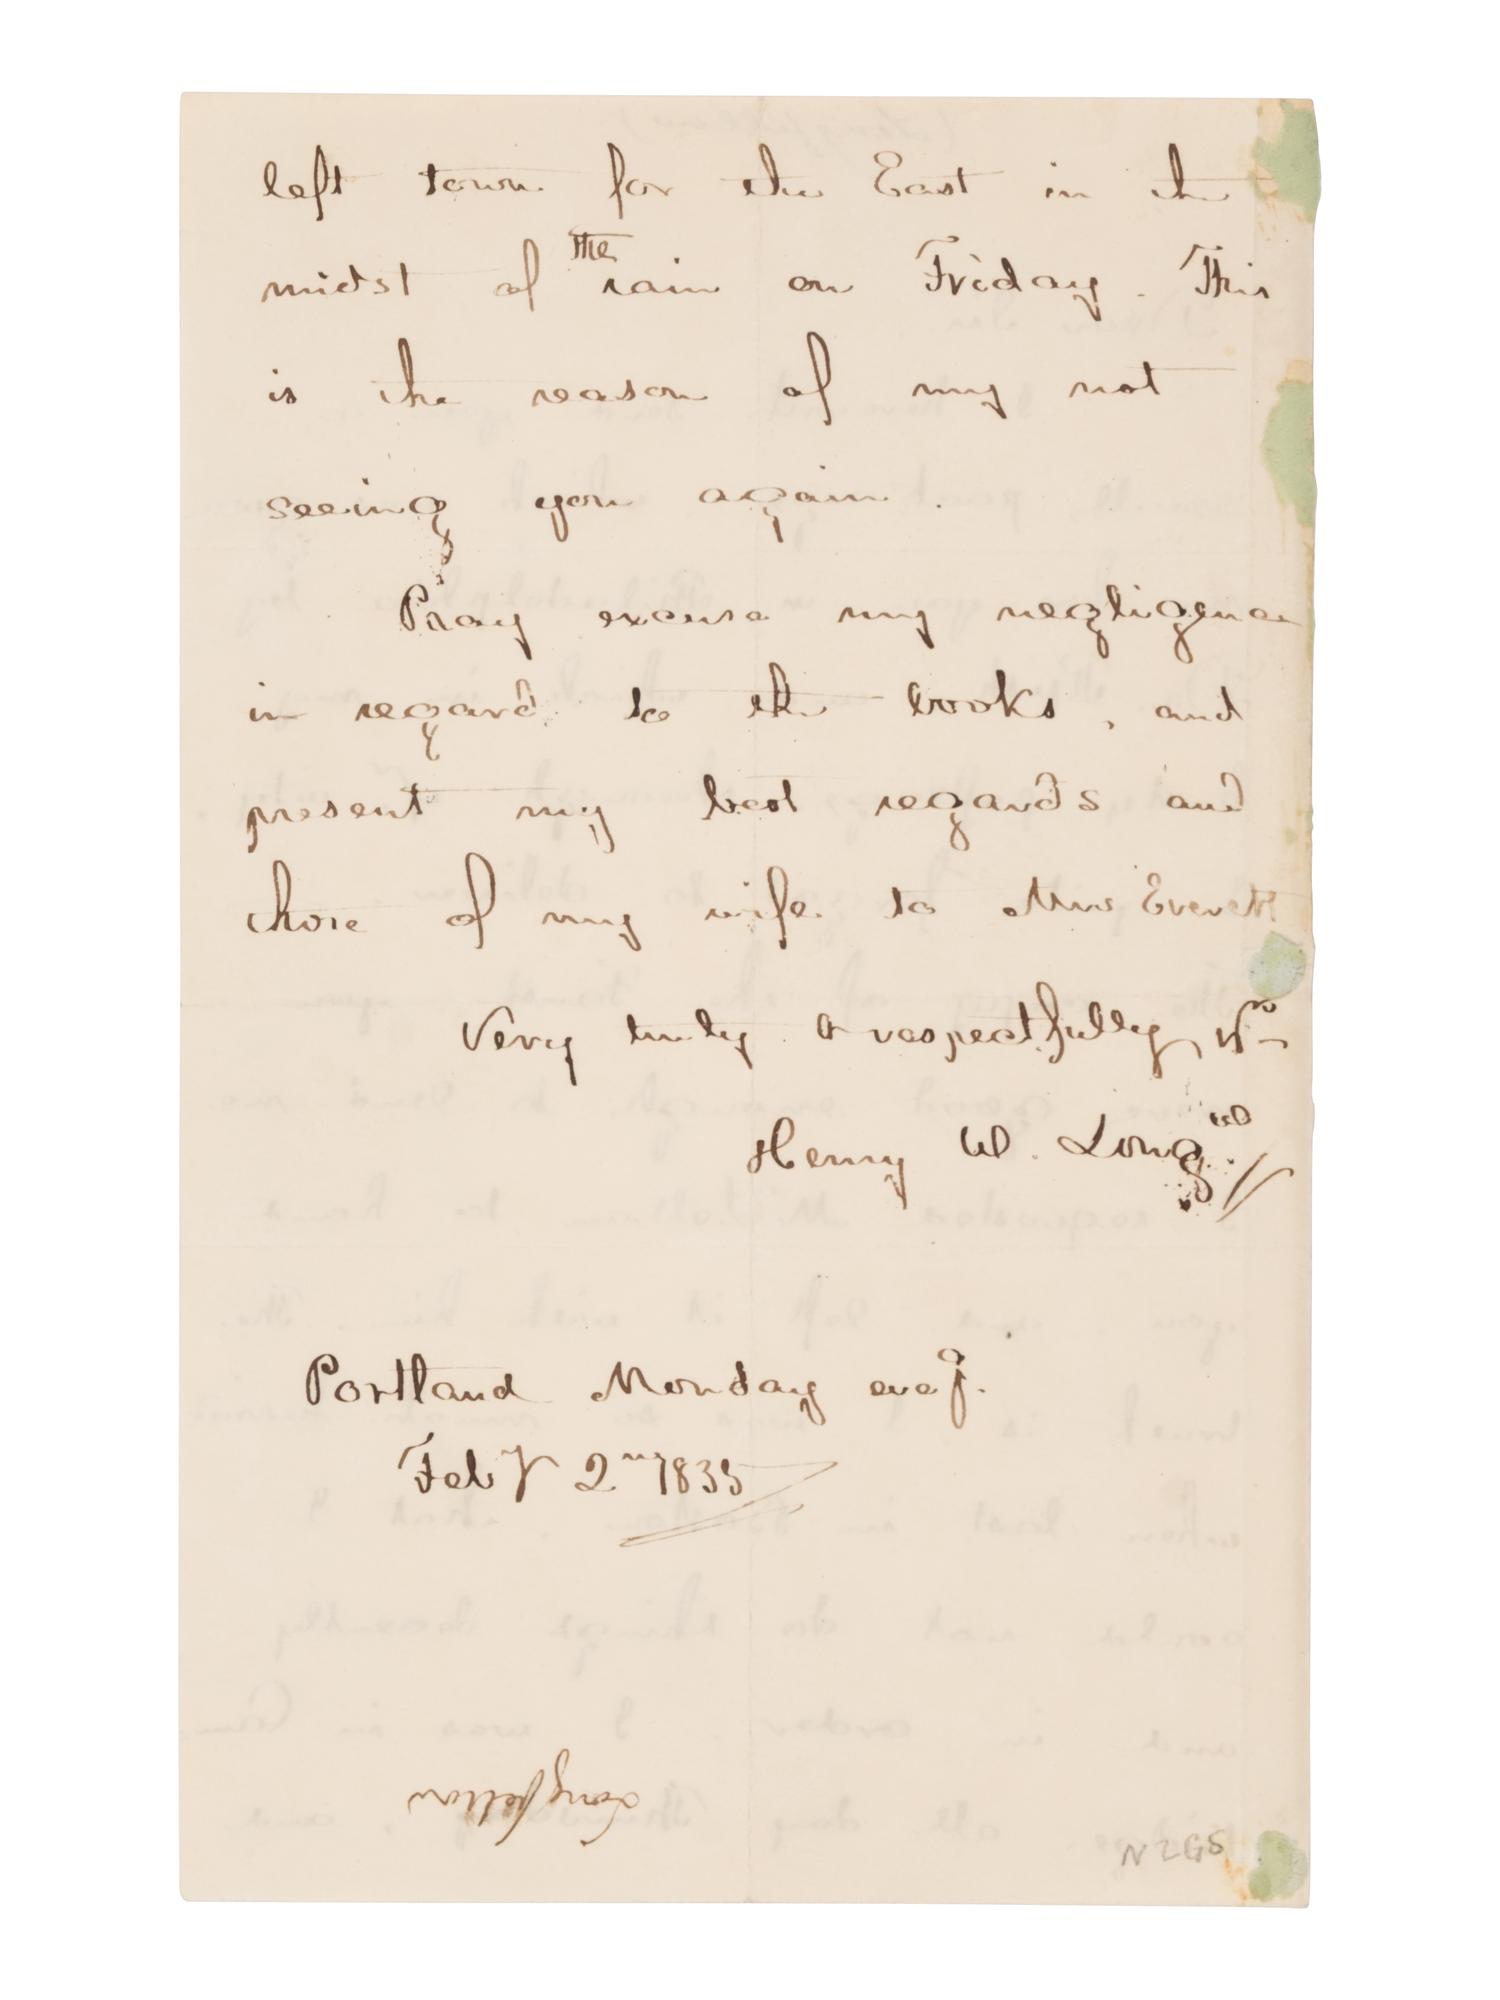 left town for the East in the
midst of the rain on Friday. This
is the reason of my not
seeing you again.
Pray excuse my negligence
in regard to the books, and
present my best regards and
those of my wife to Mrs Everett
Very truly & respectfully, yrs
Henry W. Longw
Portland Monday eveg.
Feby 2nd 1835
Longfellow
N2GS